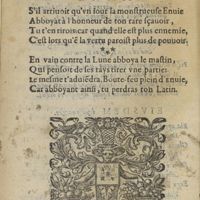 S'il arriuoit qu'vn iour la monstrueuse Enuie
Abboyat à l'honneur de ton rare sçauoir,
Tu t'en rironcar quand elle est plus ennemie,
C'est lors qu'à la vertu paroist plus de pouuoir.
En vain contre la Lune abboya le mastin,
Qui pensoit de ses rays tirer vne partie:
te mesme t'aduiēdra, Boute-feu plein d'Enuie,
Car abboyant ainsi, tu perdras ton Latin.